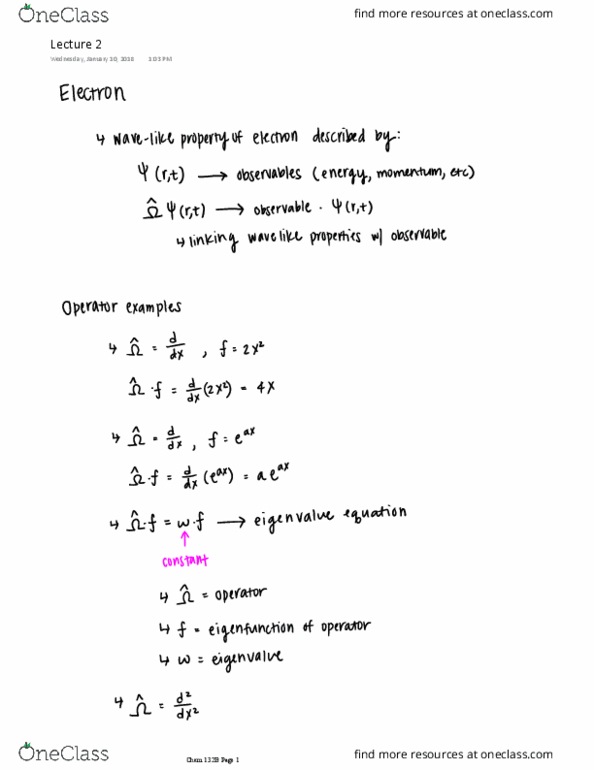 OneClass
find more resources at oneclass.com
Lecture 2
3:03 PM
Electron
↳ wave-like property of electron described by:
Ψ(r,t) → observables (energy, momentum, etc)
Ω̂ Ψ(r,t) → observable · Ψ(r,t)
↳ linking wavelike properties w/ observable
Operator examples
↳ Ω̂ = d/dx , f = 2x²
Ω̂ · f = d/dx (2x²) = 4x
↳ Ω̂ = d/dx , f = e^ax
Ω̂ · f = d/dx (e^ax) = a e^ax
↳ Ω̂ · f = w · f → eigenvalue equation
↑
constant
↳ Ω̂ = operator
↳ f = eigenfunction of operator
↳ w = eigenvalue
↳ Ω̂ = d²/dx²
Page 1
OneClass
find more resources at oneclass.com